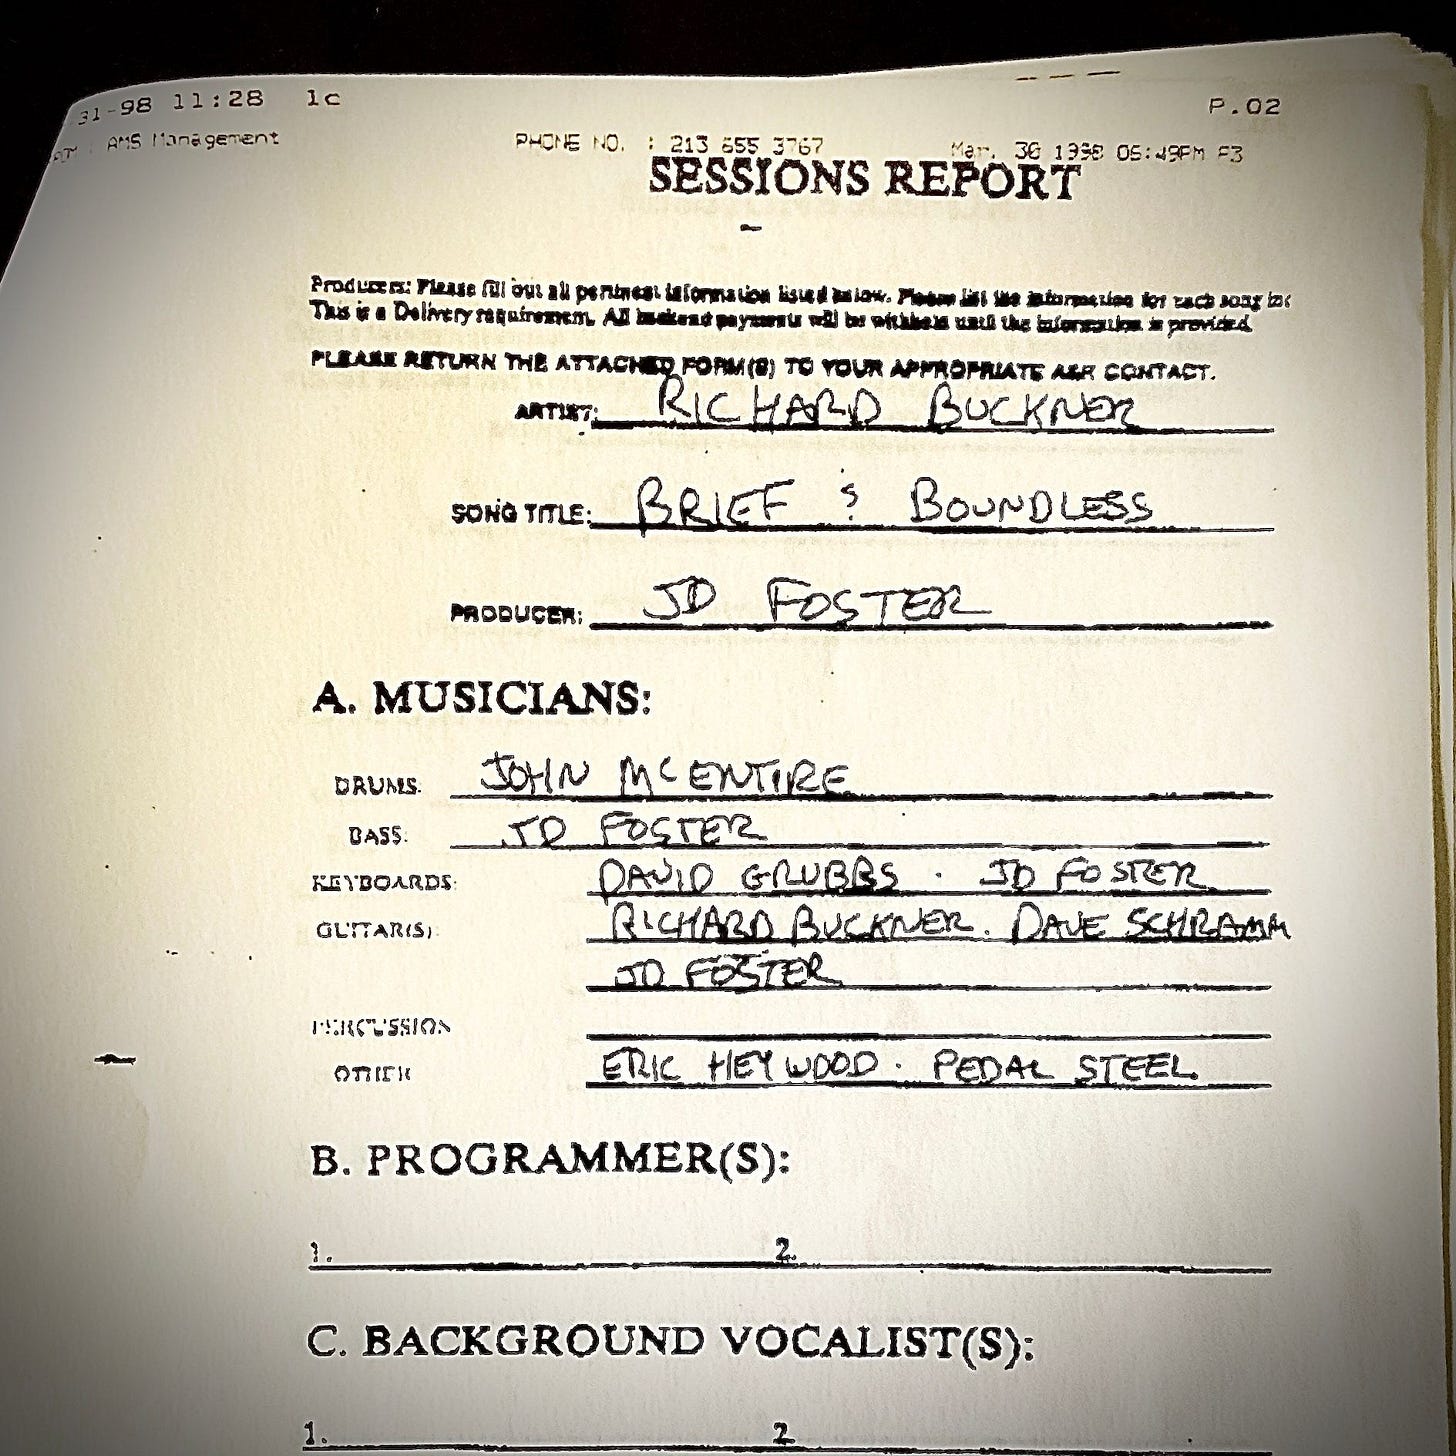 31-98 11:28 1c P.02
AMS Management PHONE NO. : 213 655 3767 Mar. 30 1998 06:49PM P3
SESSIONS REPORT
Producers: Please fill out all pertinent information listed below. Please list the information for each song
This is a Delivery requirement. All backend payments will be withheld until the information is provided.
PLEASE RETURN THE ATTACHED FORM(S) TO YOUR APPROPRIATE A&R CONTACT.
ARTIST: RICHARD BUCKNER
SONG TITLE: BRIEF & BOUNDLESS
PRODUCER: JD FOSTER
A. MUSICIANS:
DRUMS: JOHN MCENTIRE
BASS: JD FOSTER
KEYBOARDS: DAVID GRUBBS · JD FOSTER
GUITAR(S): RICHARD BUCKNER. DAVE SCHRAMM
JD FOSTER
PERCUSSION
OTHER ERIC HEYWOOD · PEDAL STEEL
B. PROGRAMMER(S):
1. 2.
C. BACKGROUND VOCALIST(S):
1. 2